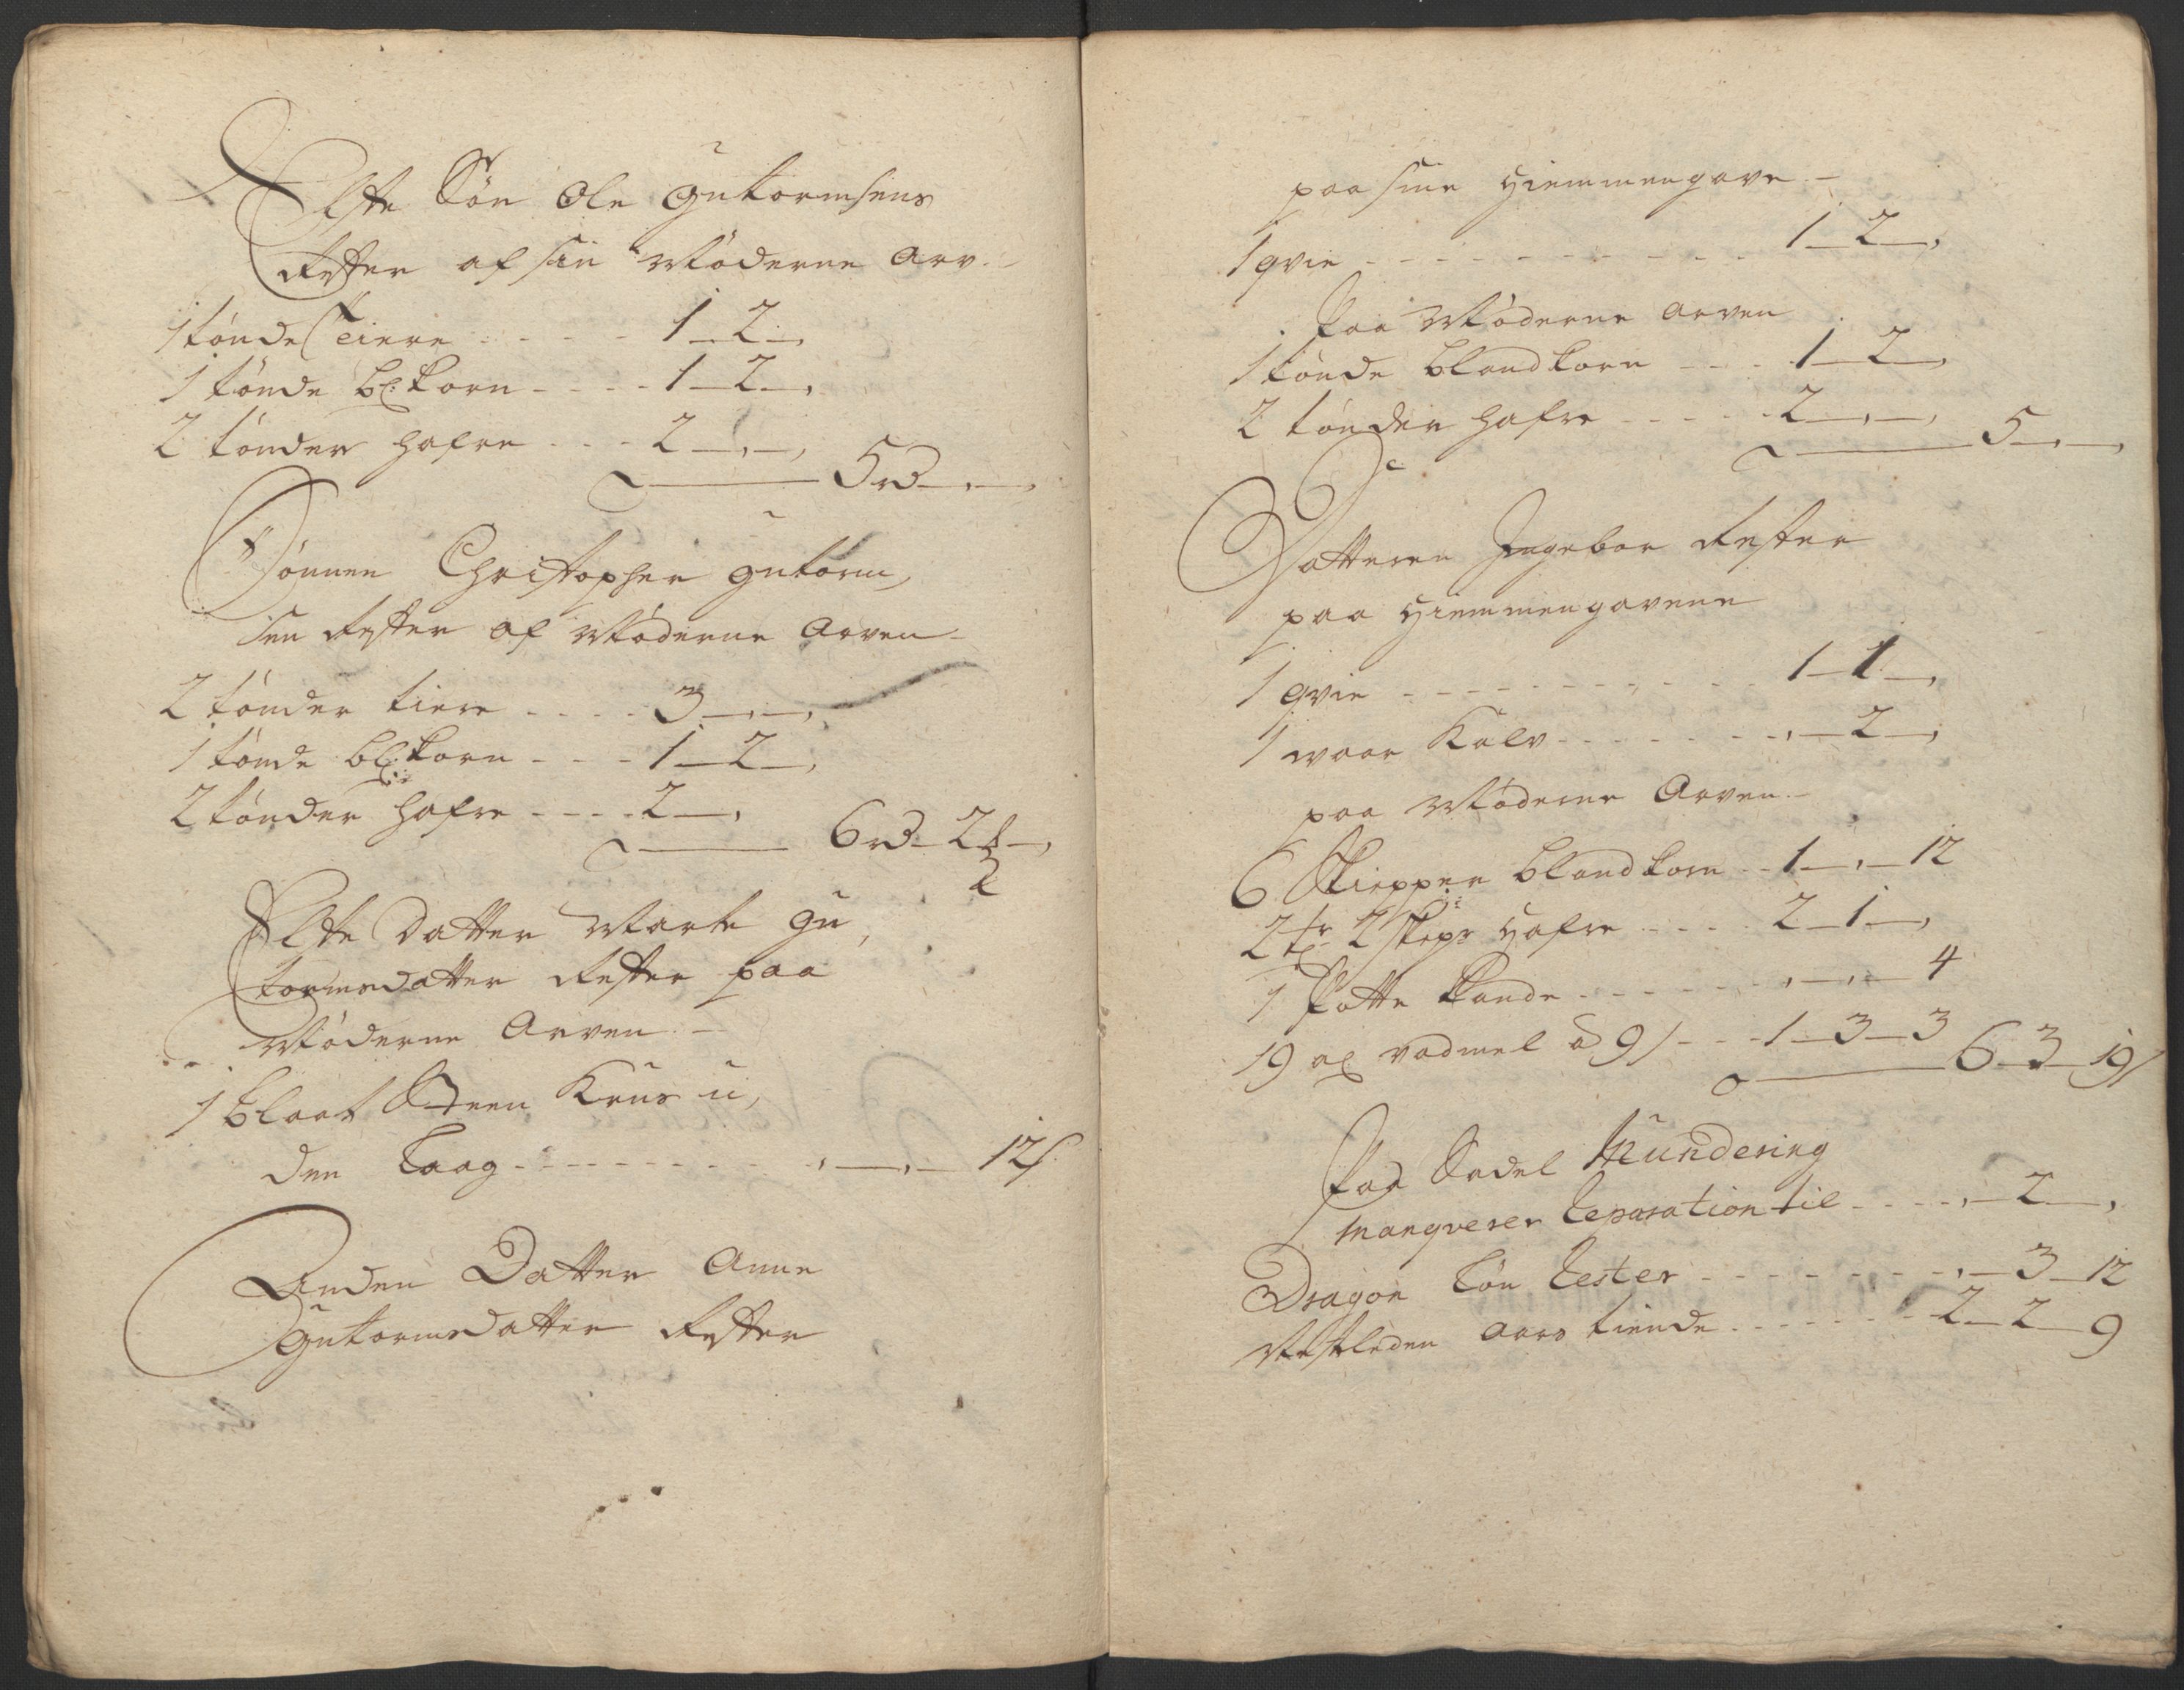 Elste Sön Ole Gutormsens
Rester af sin Möderne Arv.-
1 tönde tiere - - - - - 1–2–,
1 tönde bl: korn - - - - 1–2–,
2 tönder hafre - - - 2–,–,
5 rd–,–,
Sönnen Christopher Gutorm,
sen Rester af Möderne Arven-
2 tönder tiere - - - - 3–,–,
1 tönde bl: korn - - - 1–2–,
2 tönder hafre - - - - 2–,
6 rd–2 –,
Elste Datter Marte Gu,
tormsdatter Rester paa
Möderne Arven.-
1 blaat Steen Kruus u,
den laag - - - - - - - - - ,–,– 12s.
Anden Datter Anne
Gutormsdatter Rester
paa sine Hiemmengave.-
1 qvie - - - - - - - - - - 1–2–,
Paa Möderne Arven
1 tönde blandkorn - - - 1–2–,
2 tönder hafre - - - - - 2–,–,
5–,–,
Datteren Ingebor Rester
paa Hiemmengavene
1 qvie - - - - - - - - - - 1–1–,
1 vaar Kalv - - - - - - - ,–2–,
paa Möderne Arven.-
6 Skiepper blandkorn - - 1–,–12
2 tr 2 skepr Hafre - - - - 2–1–,
1 Potte Kande - - - - - - - ,–,– 4
19 al vadmel a 9s - - - 1–3–3
6–3–19s
Paa Sadel Mundering
Mangverer Reparation til - - - - ,–2–,
Dragon Lön Rester - - - - - - - - ,–3–12
Aars tiende - - - - - - - 2–2–9